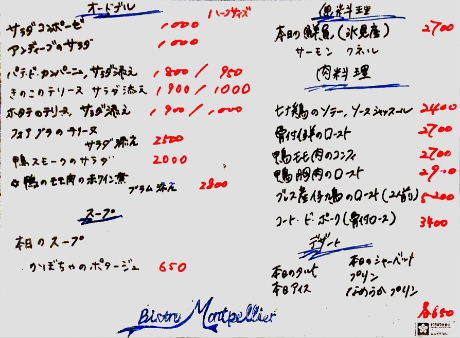 オードブル
ハーフサイズ
サラダコンポーゼ 1,000
アンディーブのサラダ 1,000
パテ・ド・カンパーニュ、サラダ添え 1,800/950
きのこのテリーヌ サラダ添え 1,900/1000
ホタテのテリーヌ、サラダ添え 1,900/1,000
フォアグラのテリーヌ
サラダ添え 2500
鴨スモークのサラダ 2000
鴨のモモ肉の赤ワイン煮
プラム添え 2800
スープ
本日のスープ
かぼちゃのポタージュ 650
魚料理
本日の鮮魚(氷見産) 2700
サーモン クネル
肉料理
七十鶏のソテー、ソースシャスール 2400
骨付仔羊のロースト 2700
鴨モモ肉のコンフィ 2700
鴨胸肉のロースト 2900
ブレス産仔鳩のロースト(2人前) 5200
コート・ド・ポーク(骨付ロース) 3400
デザート
本日のタルト 本日のシャーベット
本日アイス プリン
なめらかプリン
各650
Bistro Montpellier